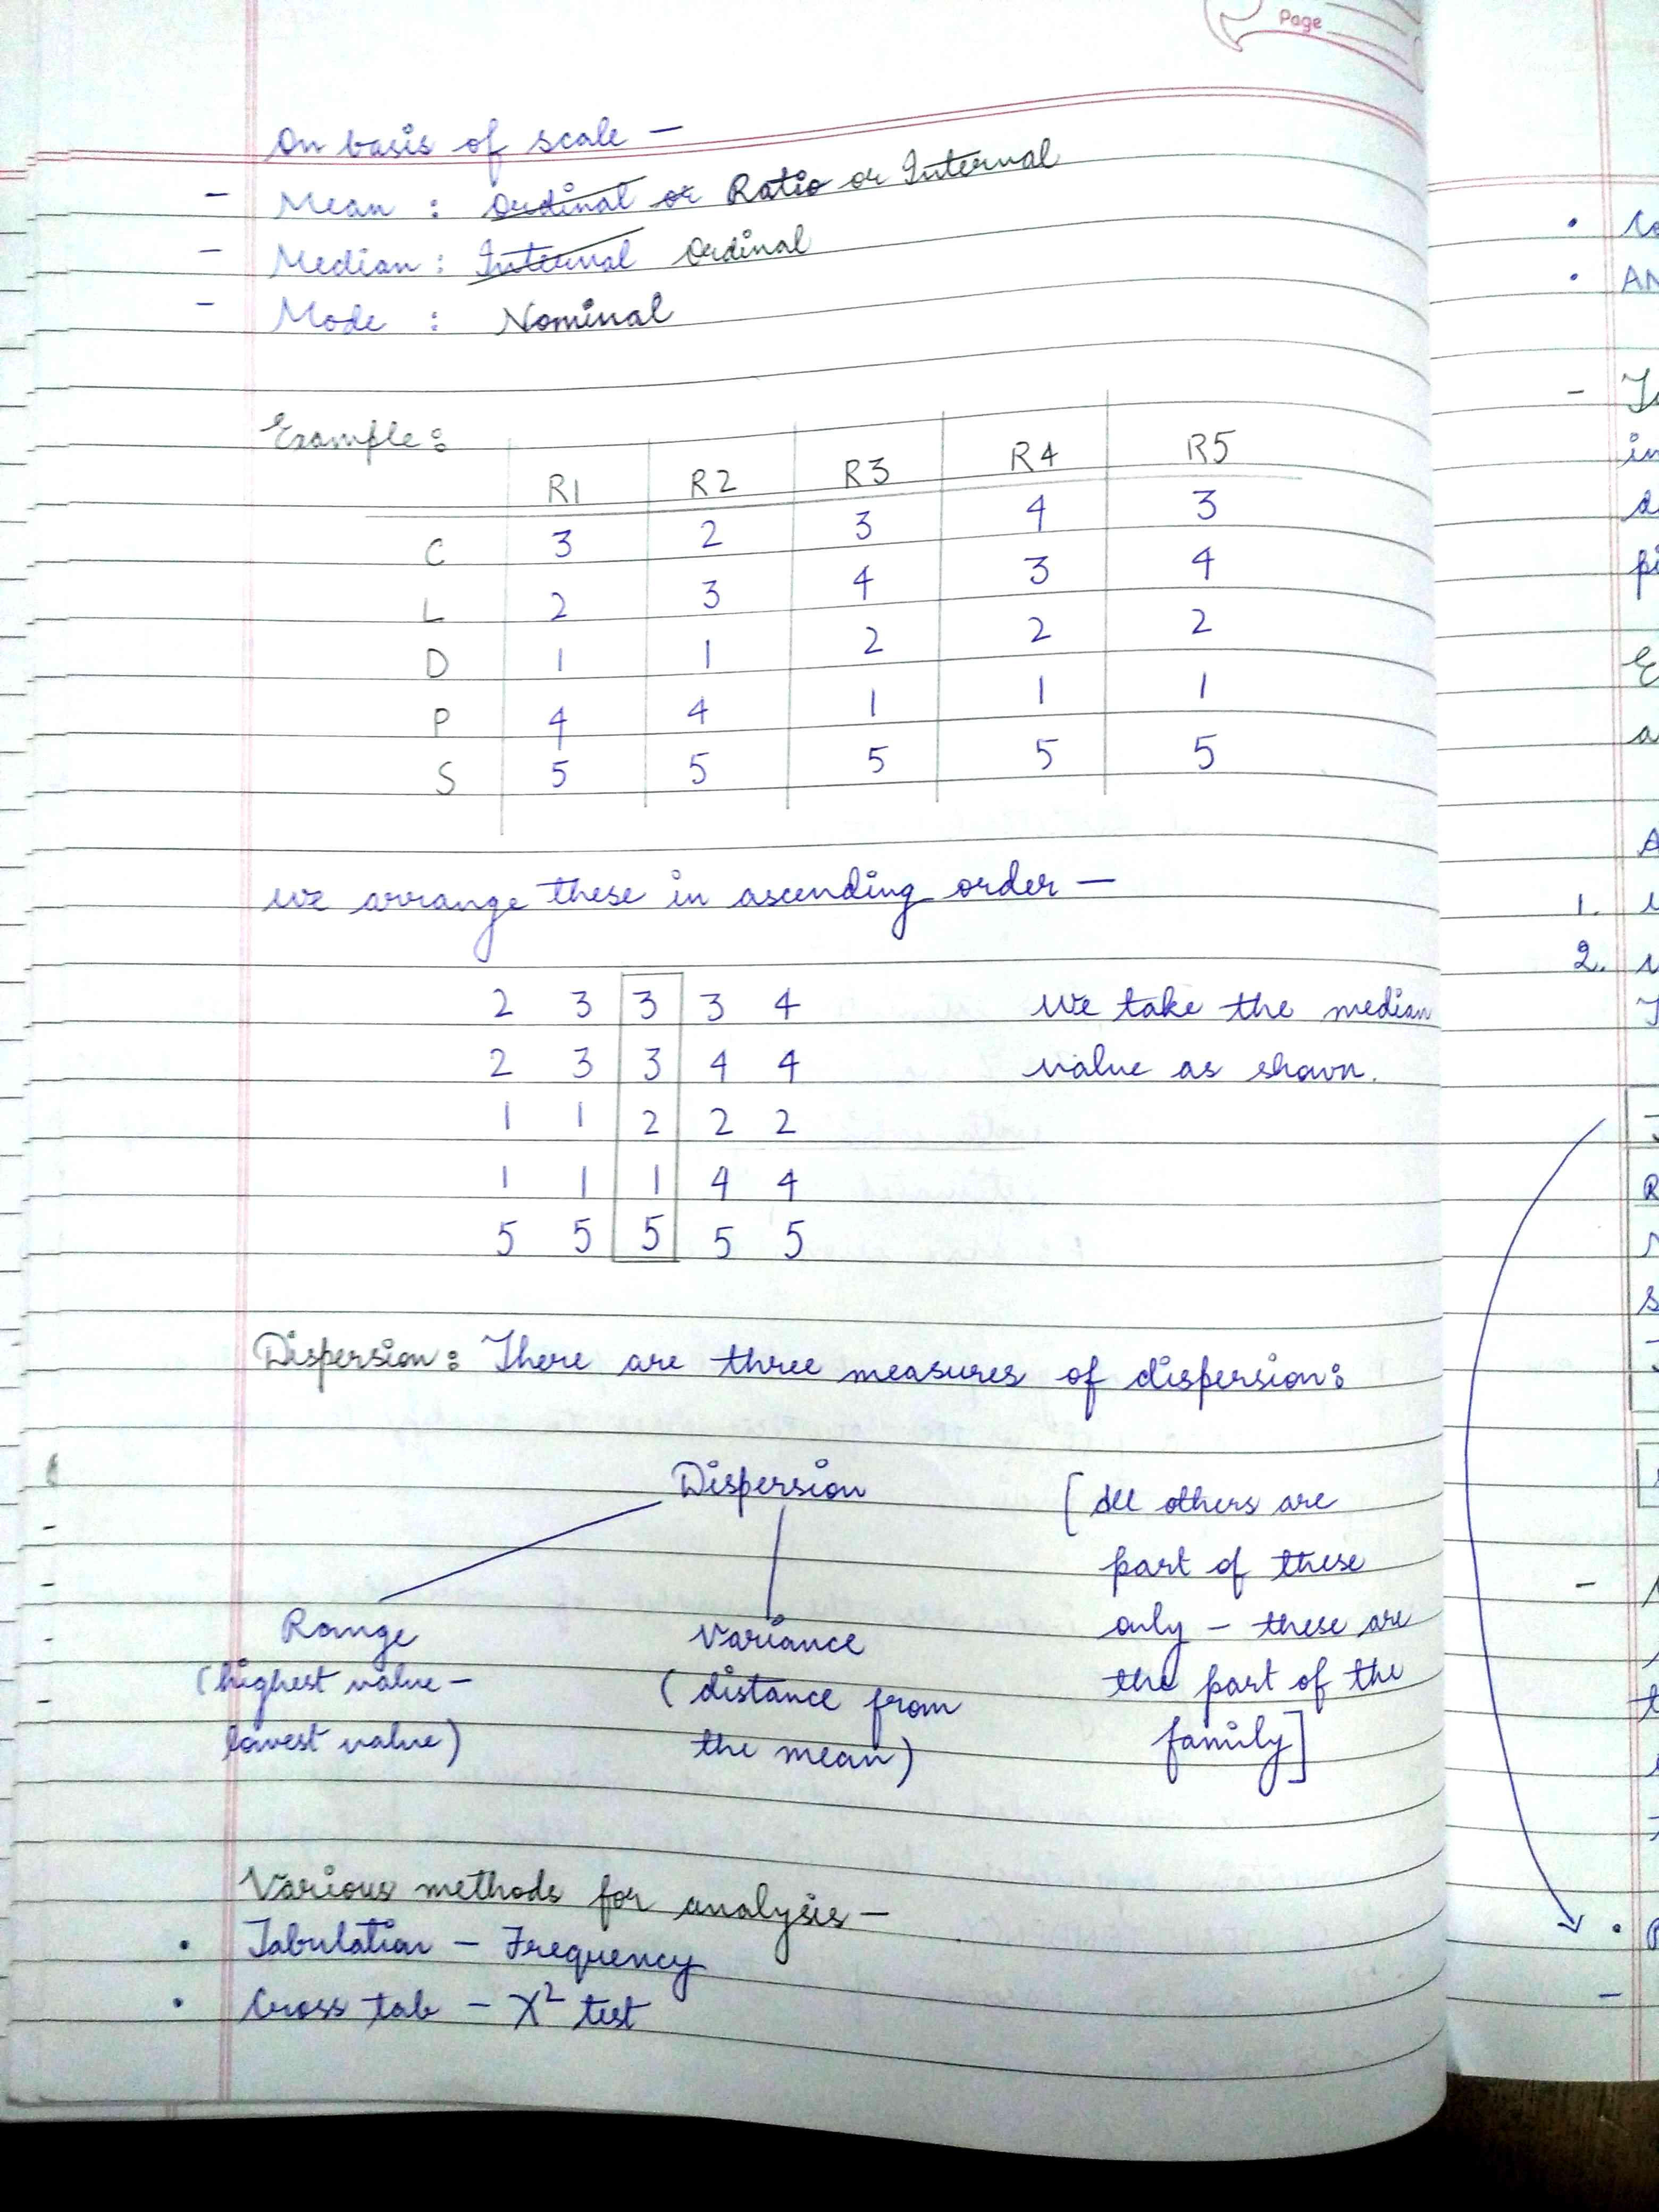 Page
On basis of scale —
- Mean : Ordinal or Ratio or Internal
- Median : Internal Ordinal
- Mode : Nominal
Example :
R1 R2 R3 R4 R5
C 3 2 3 4 3
L 2 3 4 3 4
D 1 1 2 2 2
P 4 4 1 1 1
S 5 5 5 5 5
We arrange these in ascending order —
2 3 3 3 4 We take the median
2 3 3 4 4 value as shown.
1 1 2 2 2
1 1 1 4 4
5 5 5 5 5
Dispersion : There are three measures of dispersion :
Dispersion
Range
(highest value -
lowest value)
Variance
(distance from
the mean)
[All others are
part of these
only - these are
the part of the
family]
Various methods for analysis —
• Tabulation - Frequency
• Cross tab - X² test
• AN
in
1.
2.